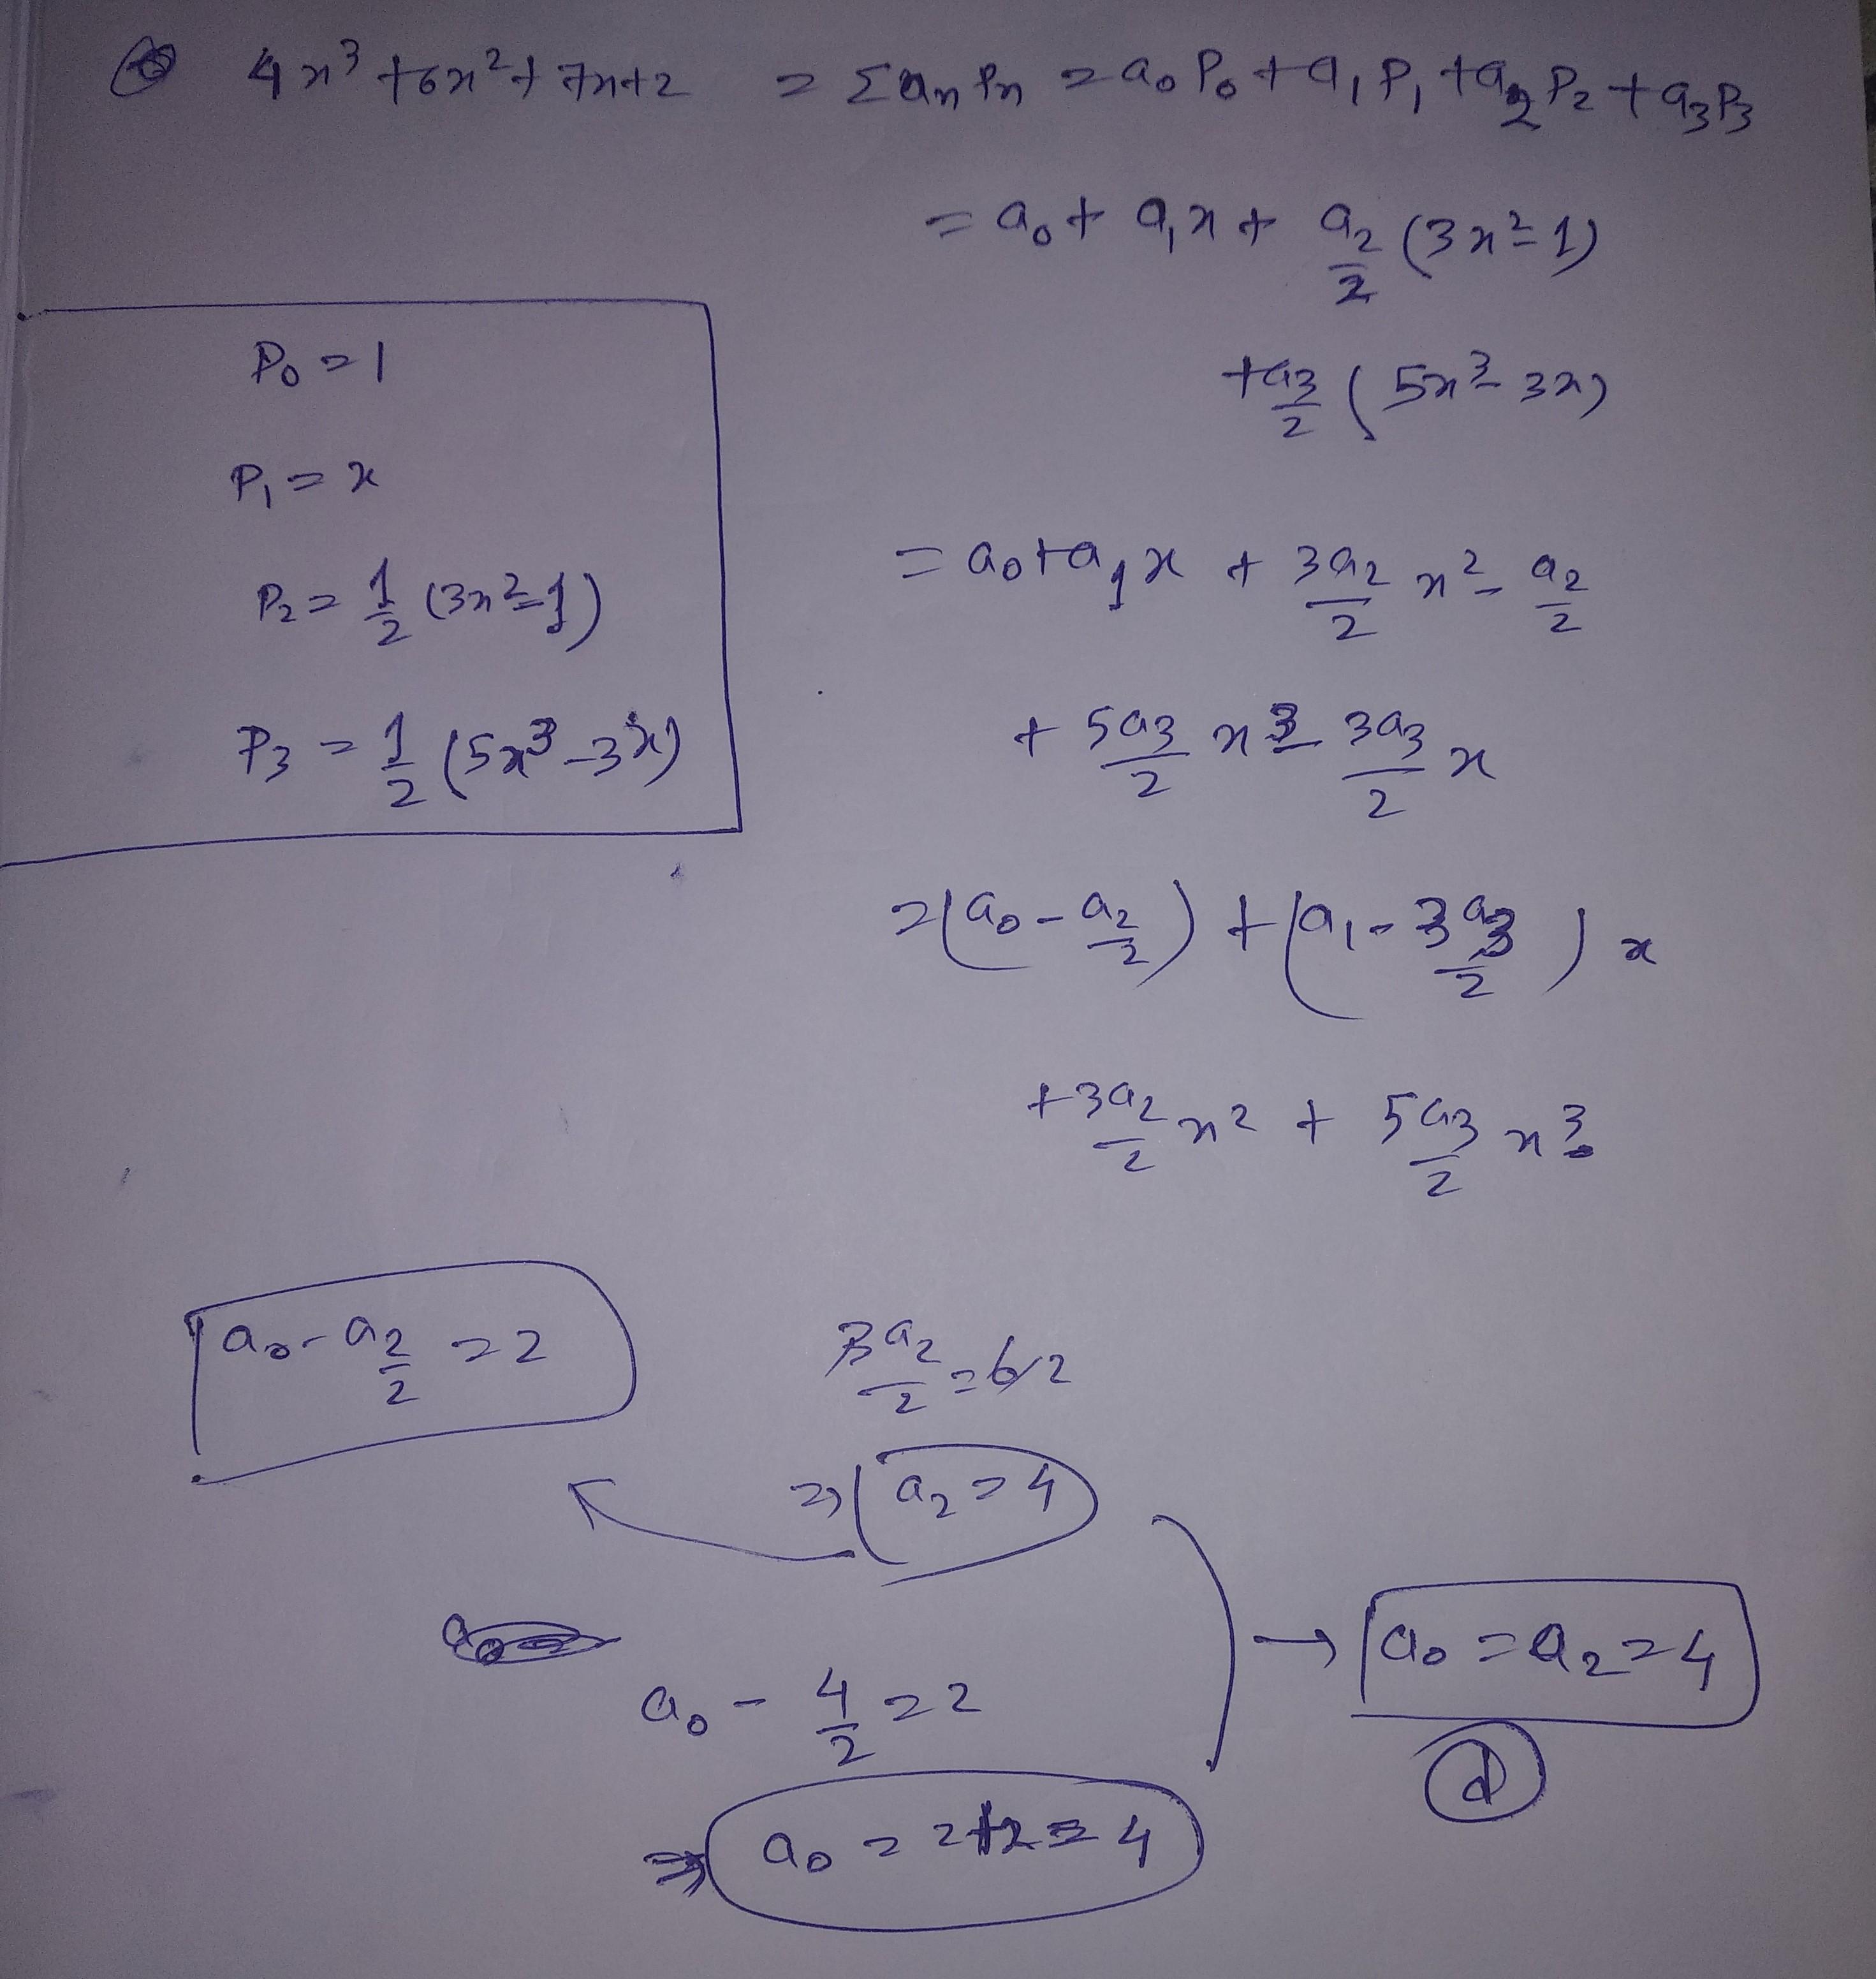 4x³ + 6x² + 7x + 2 = Σ aₙ Pₙ = a₀P₀ + a₁P₁ + a₂P₂ + a₃P₃
= a₀ + a₁x + a₂/2 (3x² - 1)
+ a₃/2 (5x³ - 3x)
P₀ = 1
P₁ = x
P₂ = 1/2 (3x² - 1)
P₃ = 1/2 (5x³ - 3x)
= a₀ + a₁x + 3a₂/2 x² - a₂/2
+ 5a₃/2 x³ - 3a₃/2 x
= (a₀ - a₂/2) + (a₁ - 3a₃/2) x
+ 3a₂/2 x² + 5a₃/2 x³
a₀ - a₂/2 = 2
3a₂/2 = 6 2
⇒ a₂ = 4
a₀ - 4/2 = 2
→ a₀ = a₂ = 4
⇒ a₀ = 2+2 = 4